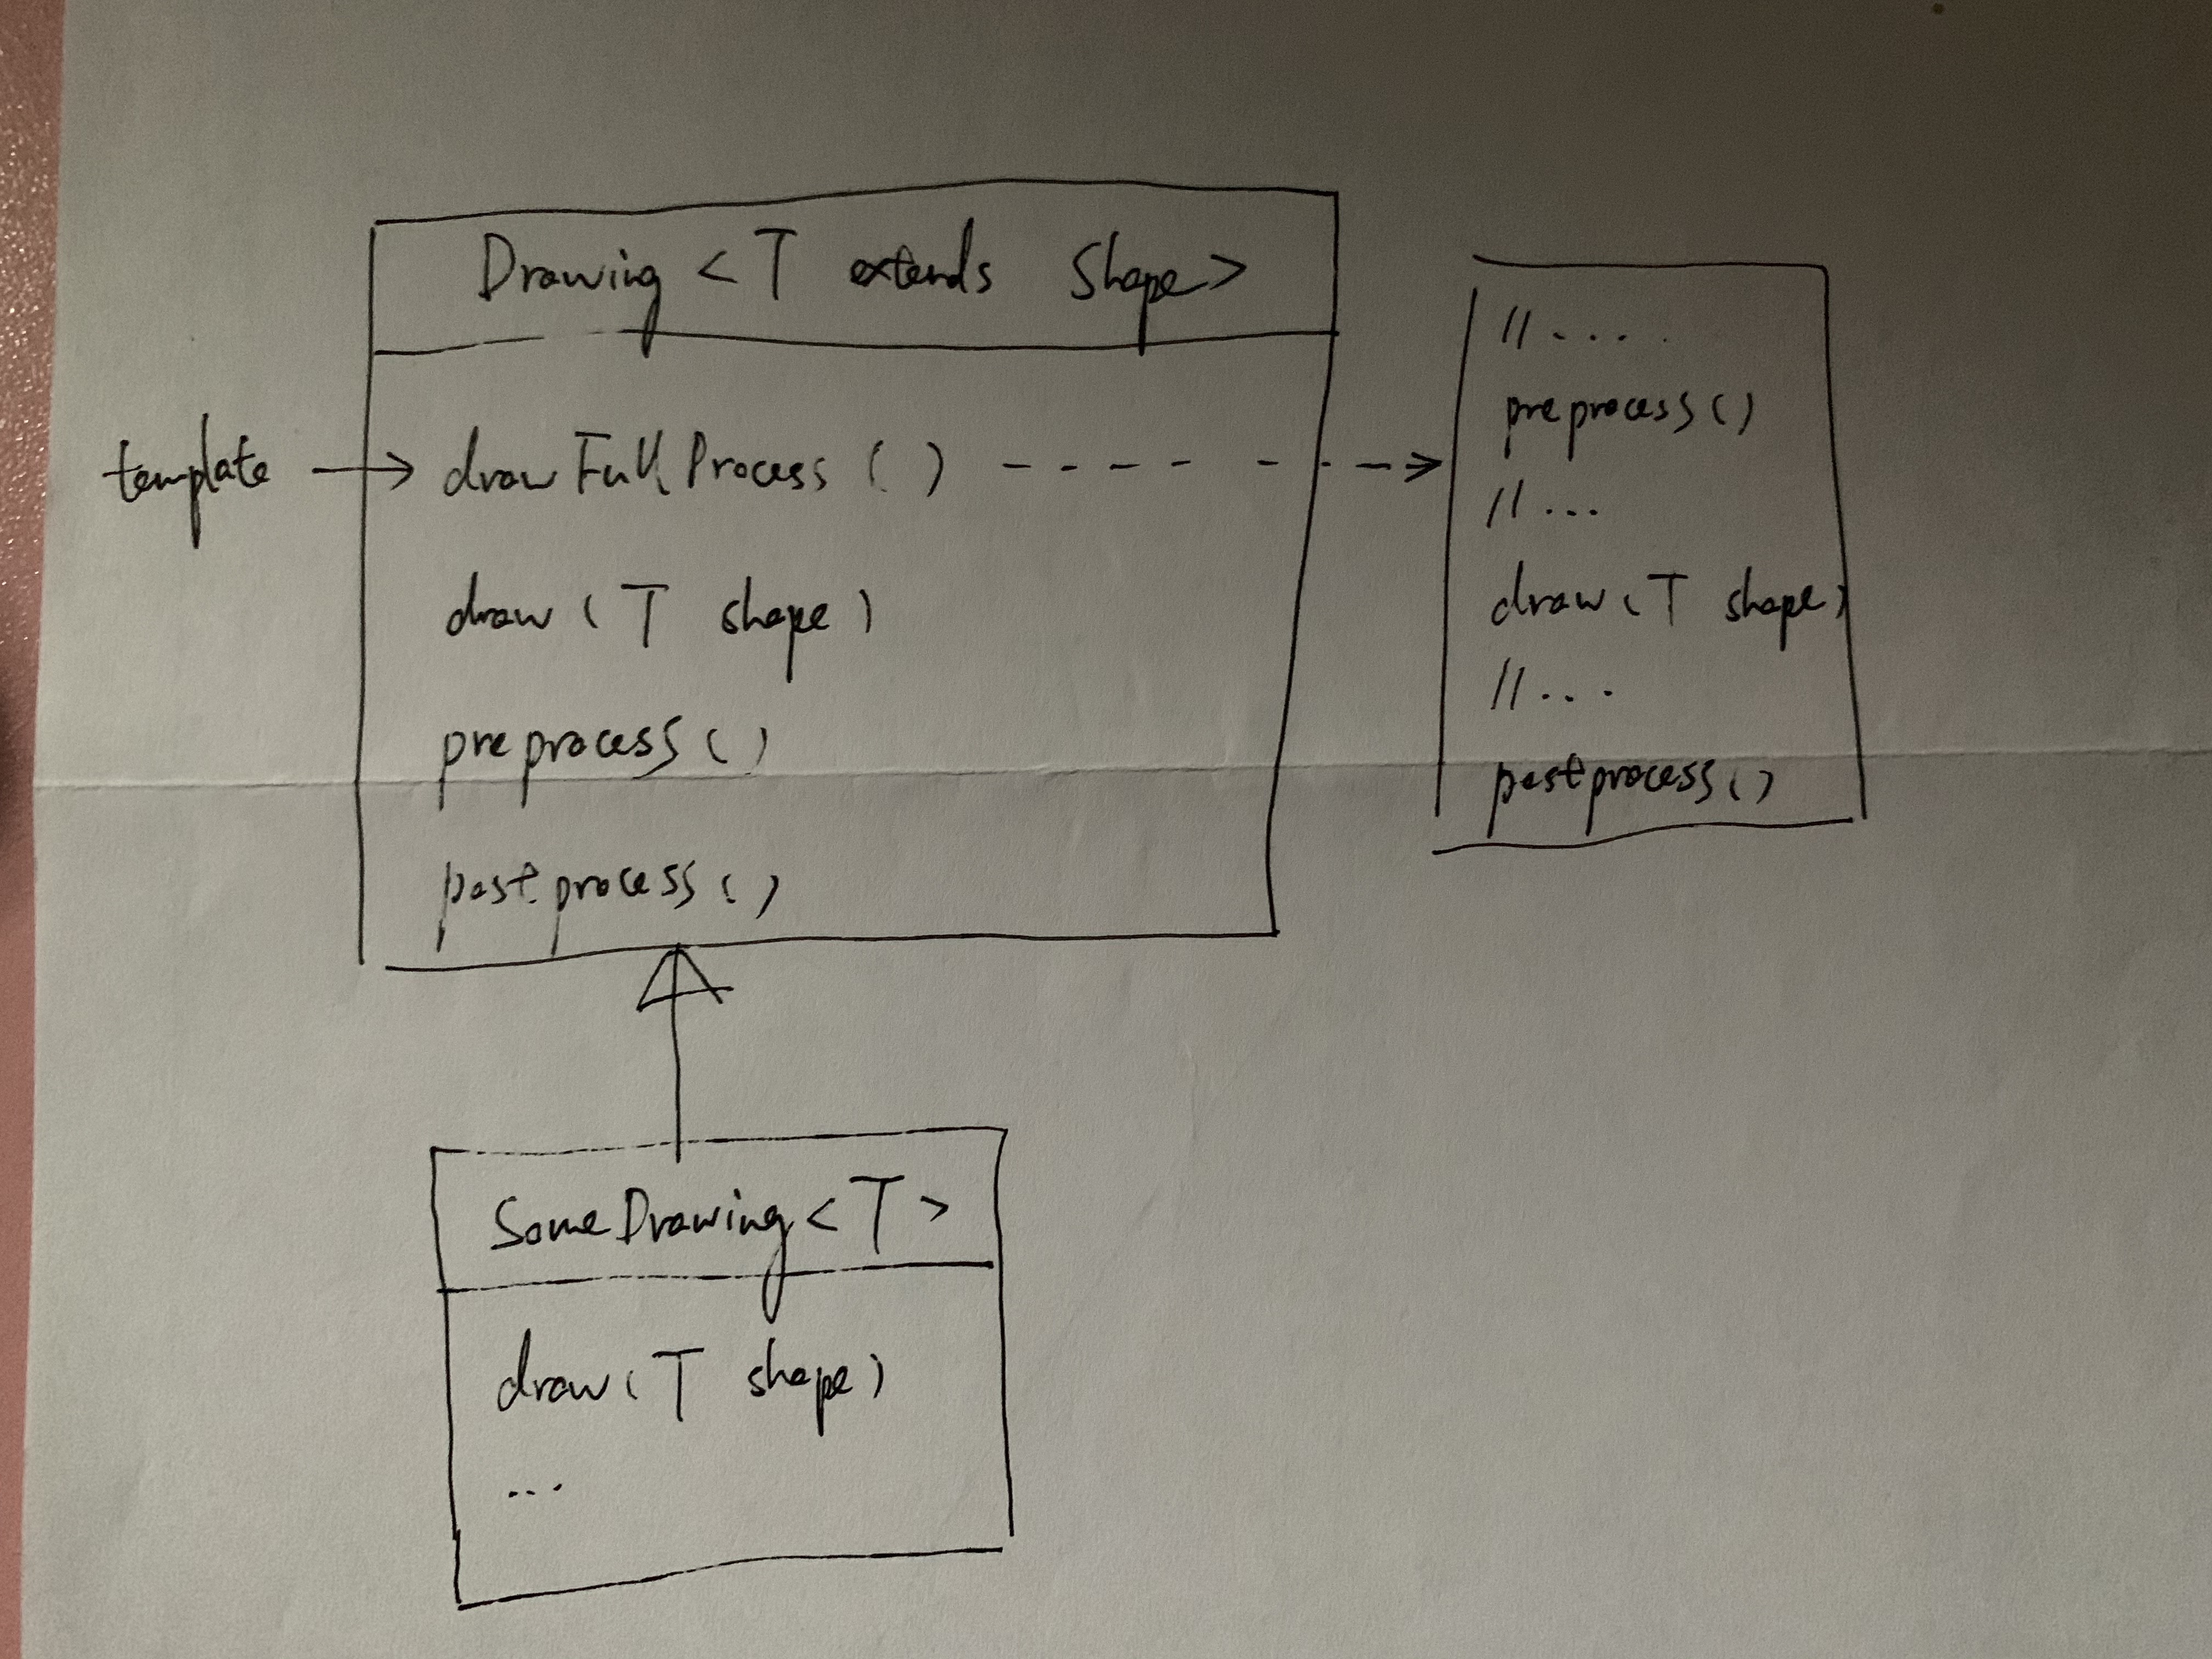 Drawing <T extends Shape>
template
drawFullProcess ( )
draw (T shape)
preprocess ( )
postprocess ( )
// ....
preprocess ( )
// ...
draw (T shape)
// ...
postprocess ( )
SomeDrawing <T>
draw (T shape)
...